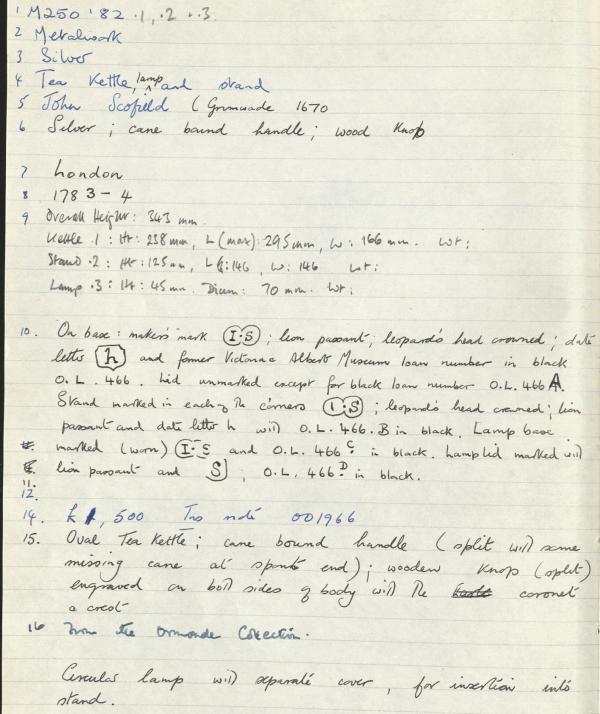 1 M250 '82 .1, .2 + .3
2 Metalwork
3 Silver
4 Tea Kettle, lamp and stand
5 John Scofield (Grimwade 1670
6 Silver ; cane bound handle ; wood knop
7 London
8 1783-4
9 Overall Height: 343 mm
Kettle .1 : Ht: 238mm, L (max): 295mm, W: 166mm. Wt:
Stand .2 : Ht: 125mm, L: 146, W: 146 Wt:
Lamp .3 : Ht: 45mm. Diam: 70 mm. Wt:
10. On base: maker's mark I·S ; lion passant; leopard's head crowned; date
letter h and former Victoria & Albert Museum loan number in black
O.L. 466. Lid unmarked except for black loan number O.L. 466 A.
Stand marked in each of the corners I·S ; leopard's head crowned; lion
passant and date letter h with O.L. 466.B in black. Lamp base
marked (worn) I·S and O.L. 466 C in black. Lamp lid marked with
lion passant and S ; O.L. 466 D in black.
11.
12.
14. £1,500 Ins note 001966
15. Oval Tea Kettle; cane bound handle (split with some
missing cane at spout end); wooden knop (split)
engraved on both sides of body with the coronet
a crest
16 From the Ormonde Collection.
Circular lamp with separate cover, for insertion into
stand.